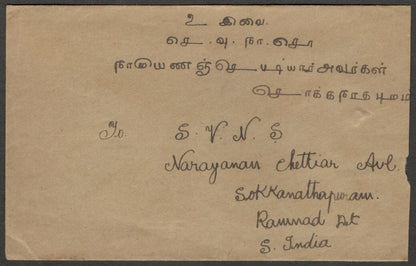 உ இவை.
செ. வு. நா. சொ
நாயெணஞ்செட்டியார் அவர்கள்
சொக்கநாதபுரம்
To.
S. V. N. S
Narayanan Chettiar Avl.
Sokkanathapuram.
Ramnad Dt
S. India